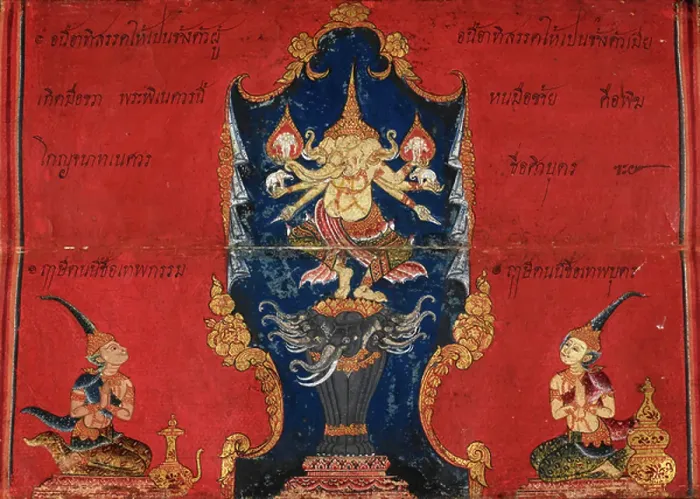 ๏ อนี้อาทิสรรคให้เปนช้างตัวผู้
เกิดมือขวา พระพิเนครนี้
โกญจนาทเนศวร
อนี้อาทิสรรคให้เปนช้างตัวเมีย
หนมือซ้าย คือพิฆ
ชื่อศิวบุตร
๏ ฤๅษีตนนีชื่อเทพกรรม
๏ ฤๅษีตนนีชื่อเทพบุตร